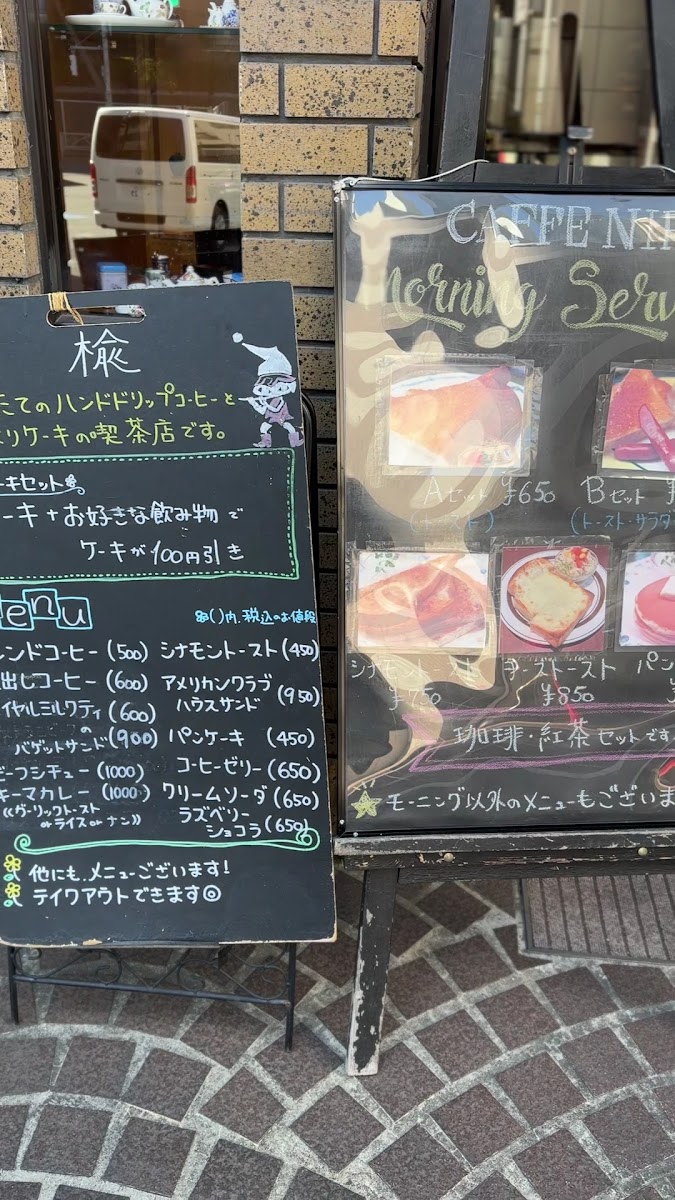 楡
たてのハンドドリップコーヒーと
リケーキの喫茶店です。
ーキセット
ーキ+お好きな飲み物で
ケーキが100円引き
enu
()内、税込のお値段
レンドコーヒー(500)
出しコーヒー(600)
イヤルミルクティ(600)
の
バゲットサンド(900)
ビーフシチュー(1000)
キーマカレー(1000)
《ガーリックトースト
orライスorナン》
シナモントースト(450)
アメリカンクラブ
ハウスサンド(950)
パンケーキ(450)
コーヒーゼリー(650)
クリームソーダ(650)
ラズベリー
ショコラ(650)
他にも、メニューございます!
テイクアウトできます
CAFFE NI
Morning Serv
Aセット ¥650
(トースト)
Bセット ¥
(トースト・サラダ
シナモントースト
¥750
チーズトースト
¥850
パン
珈琲・紅茶セットです
モーニング以外のメニューもございま